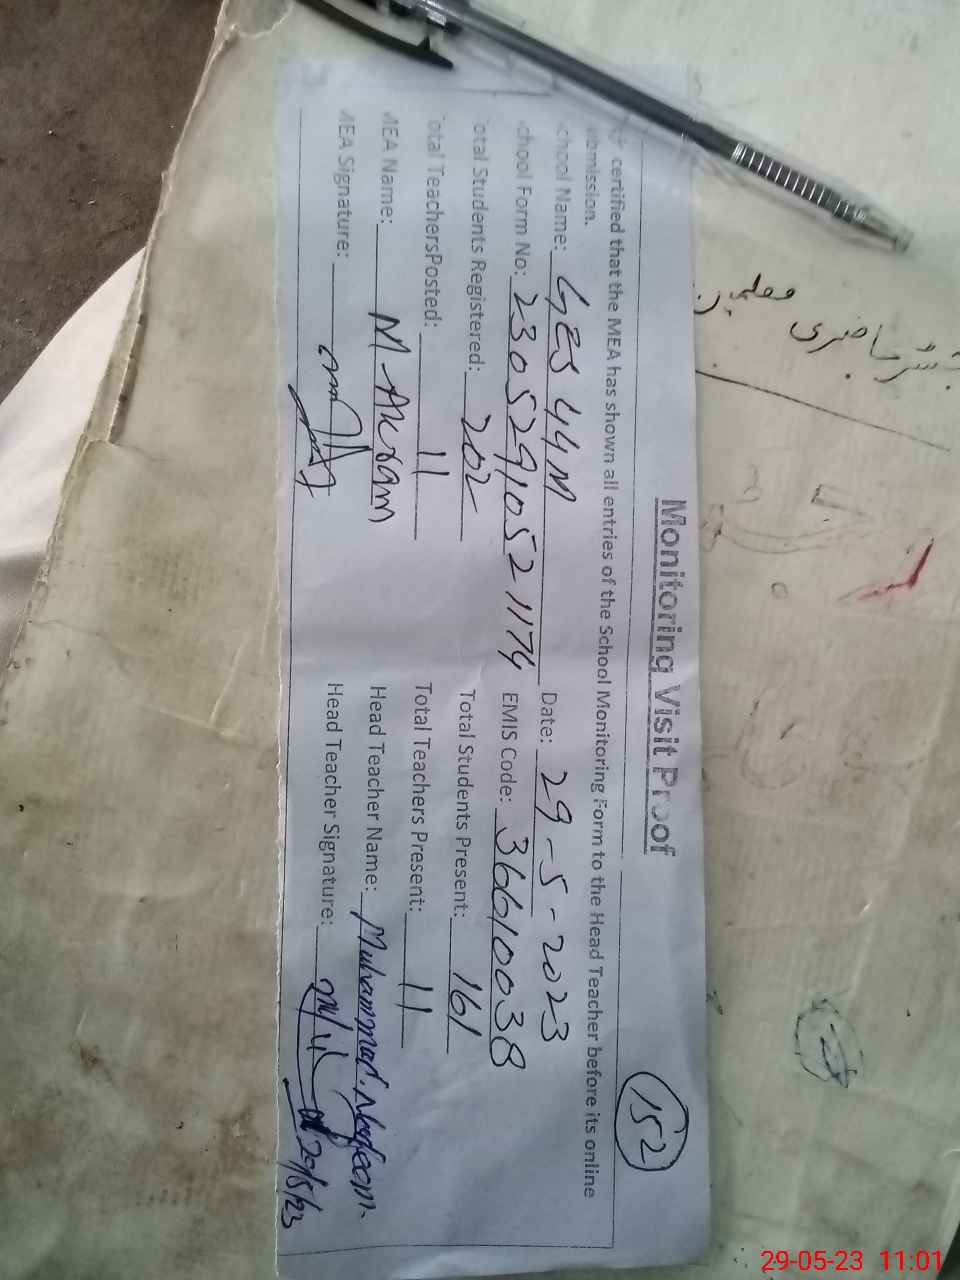 Monitoring Visit Proof
152
certified that the MEA has shown all entries of the School Monitoring Form to the Head Teacher before its online
submission.
School Name: GES 44M Date: 29-5-2023
School Form No: 23052910521174 EMIS Code: 36610038
Total Students Registered: 202 Total Students Present: 161
Total TeachersPosted: 11 Total Teachers Present: 11
MEA Name: M. Akram Head Teacher Name: Muhammad Nadeem
MEA Signature: Head Teacher Signature:
معلمین
حاضری
29-05-23 11:01